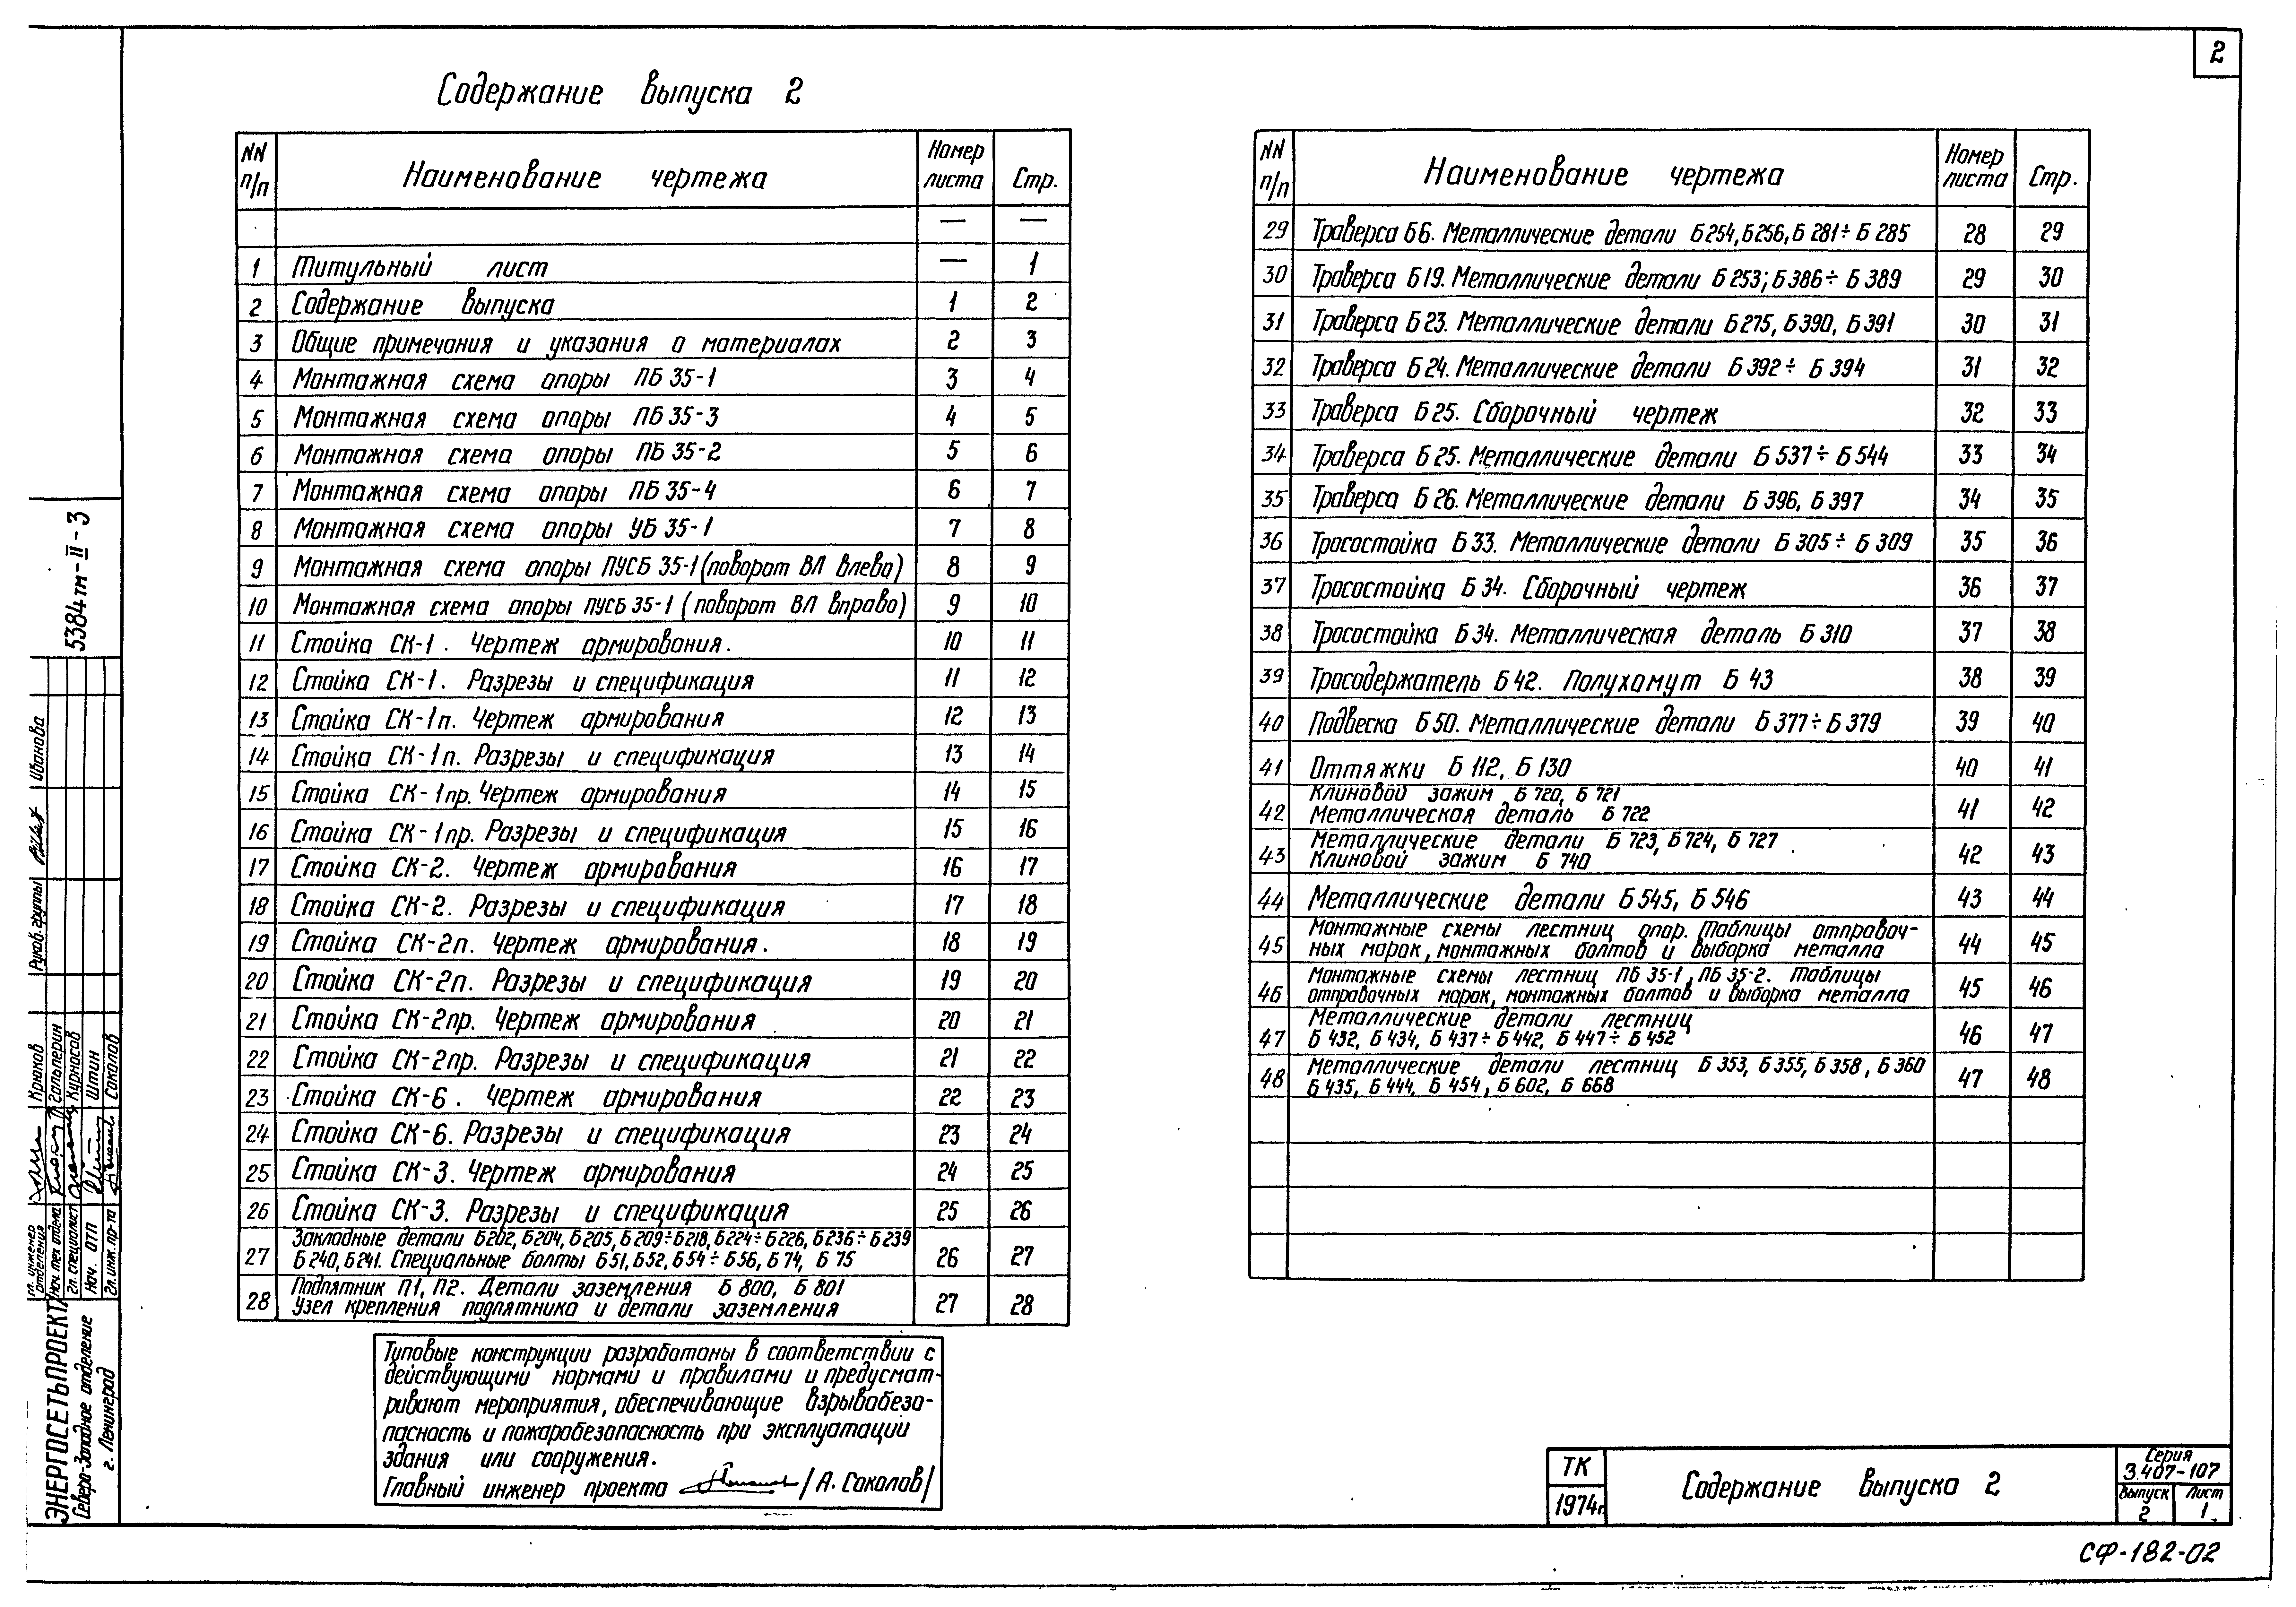 2
Содержание выпуска 2
NN п/п Наименование чертежа Номер листа Стр.
— —
1 Титульный лист — 1
2 Содержание выпуска 1 2
3 Общие примечания и указания о материалах 2 3
4 Монтажная схема опоры ПБ 35-1 3 4
5 Монтажная схема опоры ПБ 35-3 4 5
6 Монтажная схема опоры ПБ 35-2 5 6
7 Монтажная схема опоры ПБ 35-4 6 7
8 Монтажная схема опоры УБ 35-1 7 8
9 Монтажная схема опоры ПУСБ 35-1 (поворот ВЛ влево) 8 9
10 Монтажная схема опоры ПУСБ 35-1 (поворот ВЛ вправо) 9 10
11 Стойка СК-1. Чертеж армирования. 10 11
12 Стойка СК-1. Разрезы и спецификация 11 12
13 Стойка СК-1п. Чертеж армирования 12 13
14 Стойка СК-1п. Разрезы и спецификация 13 14
15 Стойка СК-1пр. Чертеж армирования 14 15
16 Стойка СК-1пр. Разрезы и спецификация 15 16
17 Стойка СК-2. Чертеж армирования 16 17
18 Стойка СК-2. Разрезы и спецификация 17 18
19 Стойка СК-2п. Чертеж армирования. 18 19
20 Стойка СК-2п. Разрезы и спецификация 19 20
21 Стойка СК-2пр. Чертеж армирования 20 21
22 Стойка СК-2пр. Разрезы и спецификация 21 22
23 Стойка СК-6. Чертеж армирования 22 23
24 Стойка СК-6. Разрезы и спецификация 23 24
25 Стойка СК-3. Чертеж армирования 24 25
26 Стойка СК-3. Разрезы и спецификация 25 26
Закладные детали Б202, Б204, Б205, Б209÷Б218, Б224÷Б226, Б236÷Б239
27 Б240, Б241. Специальные болты Б51, Б52, Б54÷Б56, Б74, Б75 26 27
Подпятник П1, П2. Детали заземления Б 800, Б 801
28 Узел крепления подпятника и детали заземления 27 28
Типовые конструкции разработаны в соответствии с
действующими нормами и правилами и предусмат-
ривают мероприятия, обеспечивающие взрывобезо-
пасность и пожаробезопасность при эксплуатации
здания или сооружения.
Главный инженер проекта /А. Соколов/
NN п/п Наименование чертежа Номер листа Стр.
29 Траверса Б6. Металлические детали Б254, Б256, Б 281÷ Б 285 28 29
30 Траверса Б19. Металлические детали Б 253; Б 386÷ Б 389 29 30
31 Траверса Б 23. Металлические детали Б 275, Б 390, Б 391 30 31
32 Траверса Б 24. Металлические детали Б 392÷ Б 394 31 32
33 Траверса Б 25. Сборочный чертеж 32 33
34 Траверса Б 25. Металлические детали Б 537÷ Б 544 33 34
35 Траверса Б 26. Металлические детали Б 396, Б 397 34 35
36 Тросостойка Б 33. Металлические детали Б 305÷ Б 309 35 36
37 Тросостойка Б 34. Сборочный чертеж 36 37
38 Тросостойка Б 34. Металлическая деталь Б 310 37 38
39 Тросодержатель Б 42. Полухомут Б 43 38 39
40 Подвеска Б 50. Металлические детали Б 377÷ Б 379 39 40
41 Оттяжки Б 112, Б 130 40 41
Клиновой зажим Б 720, Б 721
42 Металлическая деталь Б 722 41 42
Металлические детали Б 723, Б 724, Б 727
43 Клиновой зажим Б 740 42 43
44 Металлические детали Б 545, Б 546 43 44
Монтажные схемы лестниц опор. Таблицы отправоч-
45 ных марок, монтажных болтов и выборка металла 44 45
Монтажные схемы лестниц ПБ 35-1, ПБ 35-2. Таблицы
46 отправочных марок, монтажных болтов и выборка металла 45 46
Металлические детали лестниц
47 Б 432, Б 434, Б 437÷ Б 442, Б 447÷ Б 452 46 47
Металлические детали лестниц Б 353, Б 355, Б 358, Б 360
48 Б 435, Б 444, Б 454, Б 602, Б 668 47 48
ТК
1974г.
Содержание выпуска 2
Серия
3.407-107
Выпуск Лист
2 1
СФ-182-02
5384тм-II-3
Руков. группы Иванова
Гл. инженер отделения Крюков
Нач. тех отдела Гальперин
Гл. специалист Курносов
Нач. ОТП Штин
Гл. инж. пр-та Соколов
ЭНЕРГОСЕТЬПРОЕКТ
Северо-Западное отделение
г. Ленинград